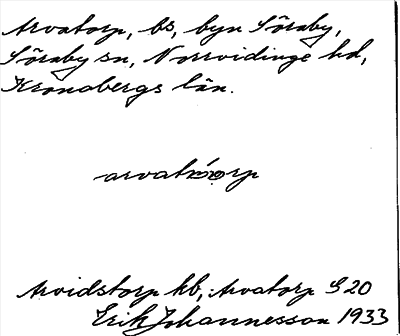 Arvatorp, bs, byn Söraby,
Söraby sn, Norrvidinge hd,
Kronobergs län.
arvatòrp
Arvidstorp kb, Arvatorp S 20
Erik Johannesson 1933